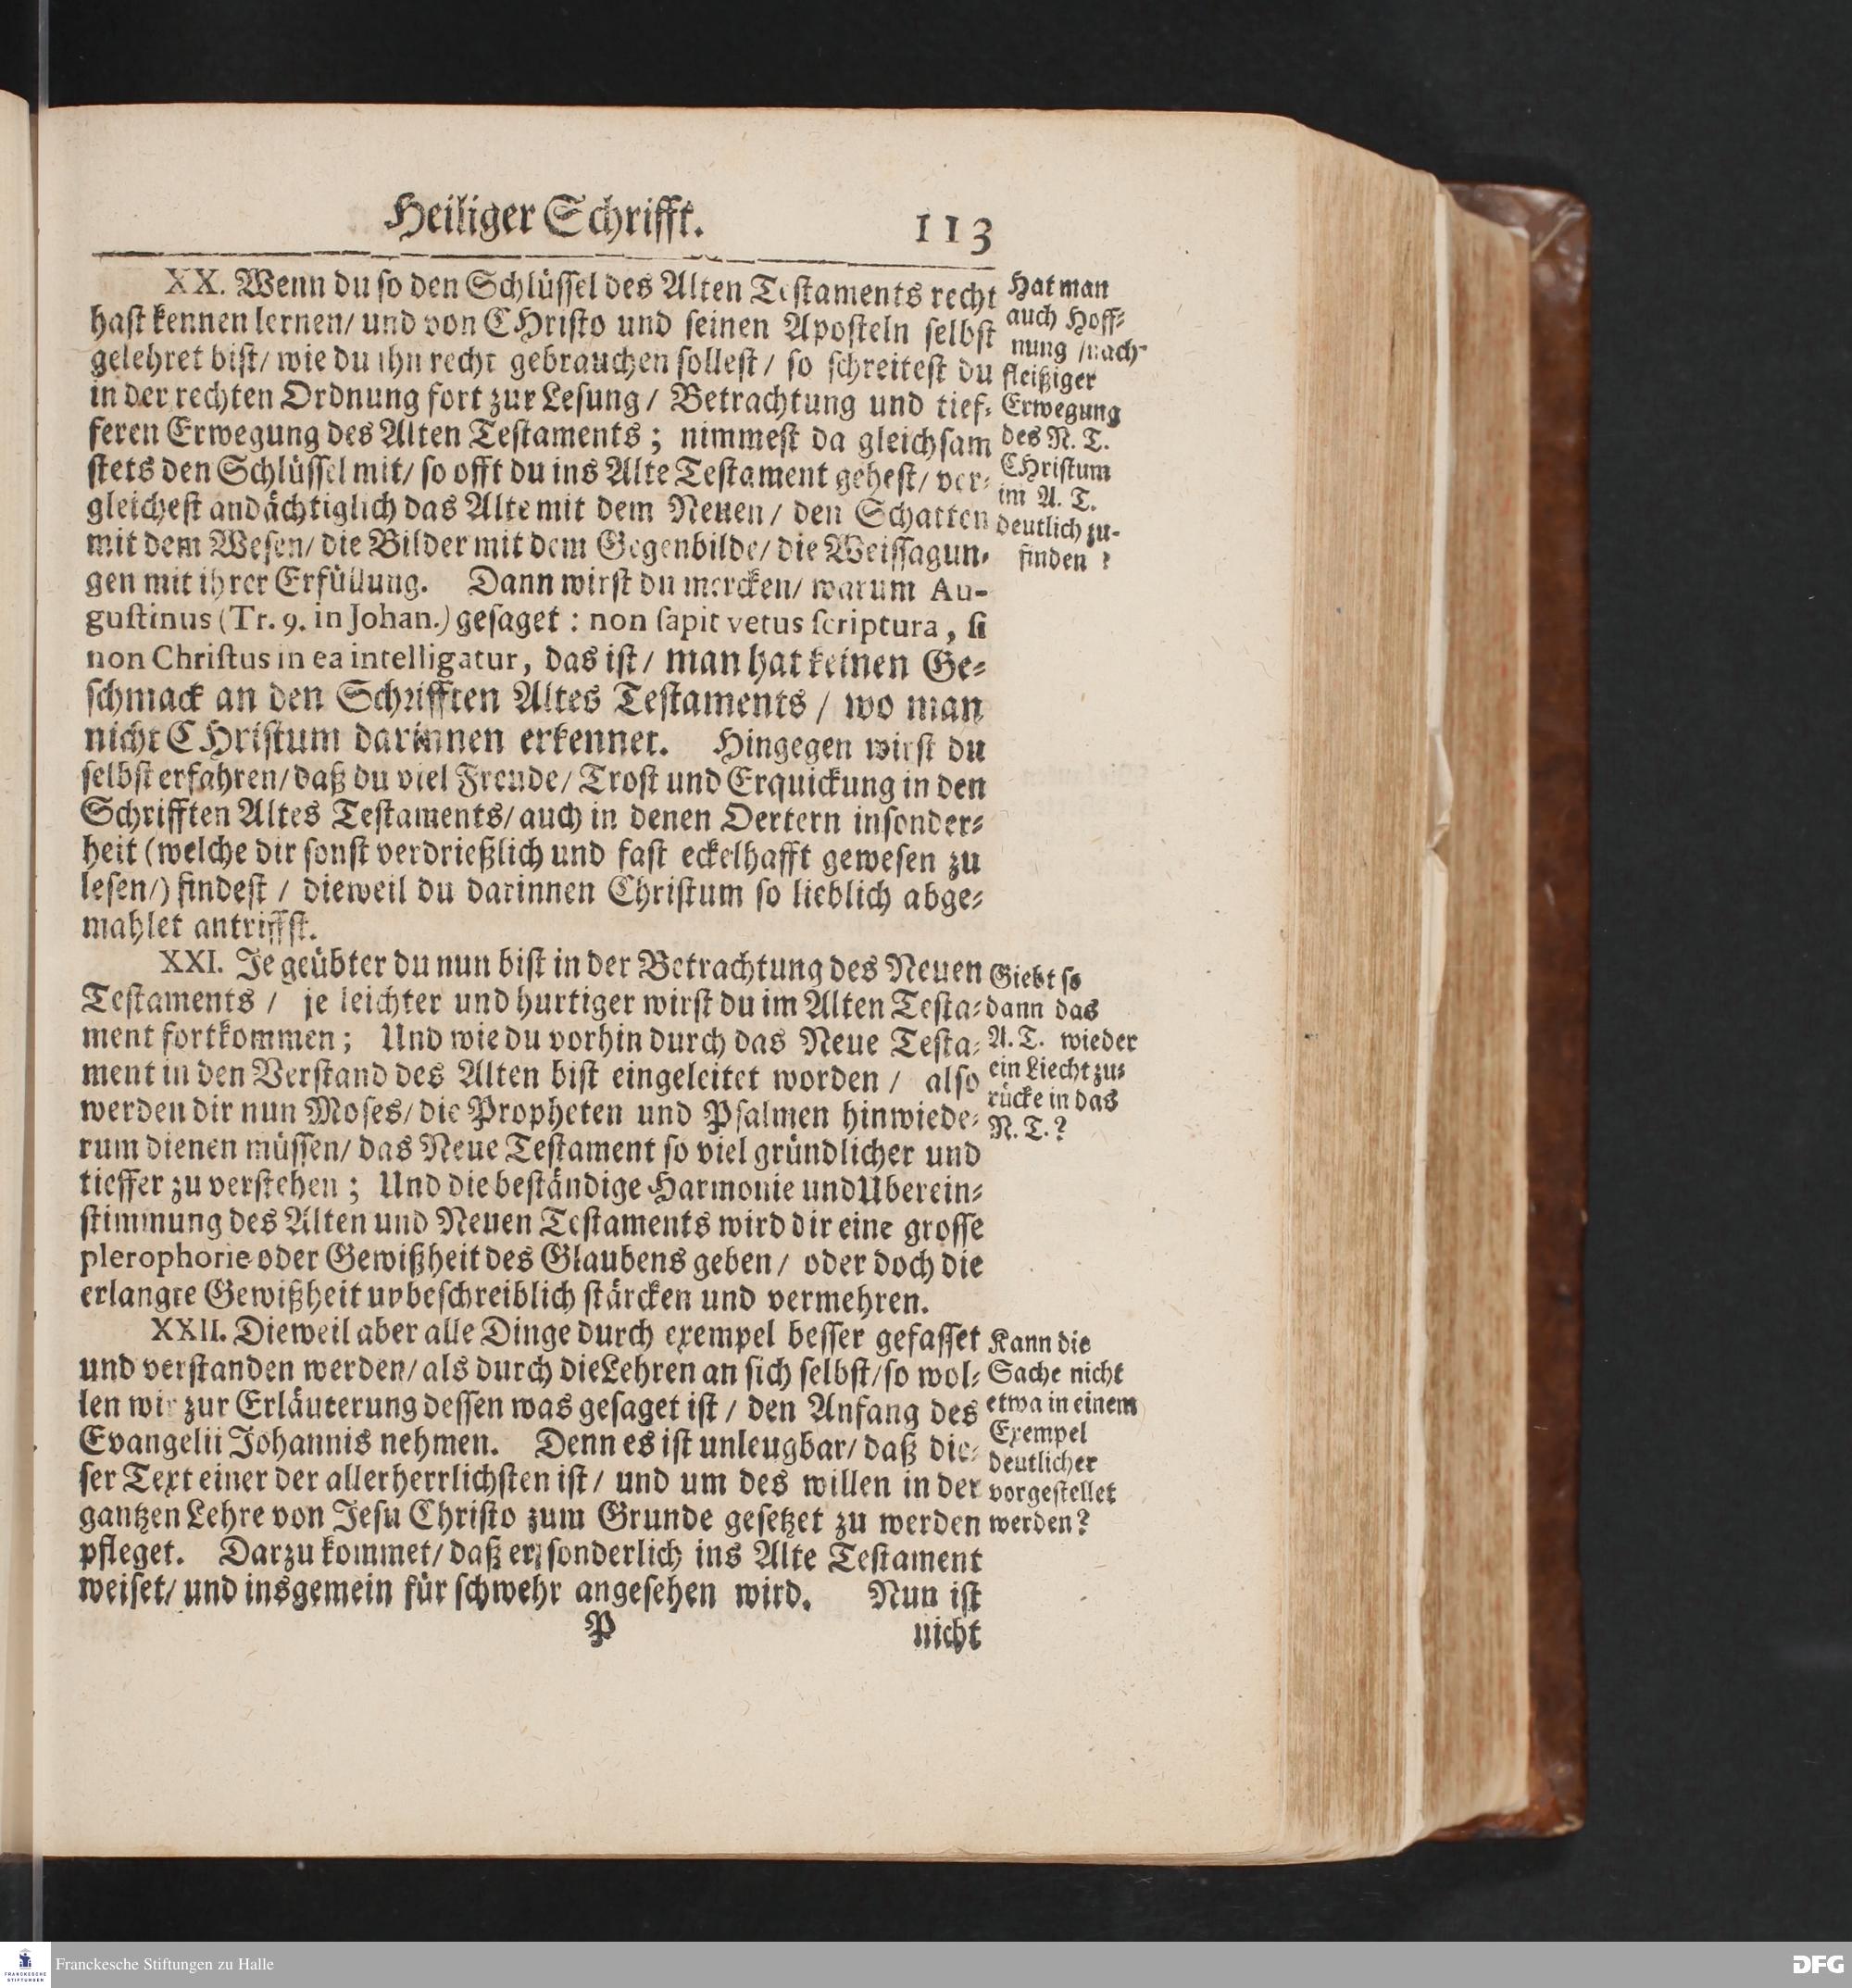 Heiliger Schrifft. 113
XX. Wenn du so den Schlüssel des Alten Testaments recht
hast kennen lernen/ und von CHristo und seinen Aposteln selbst
gelehret bist/ wie du ihn recht gebrauchen sollest/ so schreitest du
in der rechten Ordnung fort zur Lesung/ Betrachtung und tief-
feren Erwegung des Alten Testaments; nimmest da gleichsam
stets den Schlüssel mit/ so offt du ins Alte Testament gehest/ ver-
gleichest andächtiglich das Alte mit dem Neuen/ den Schatten
mit dem Wesen/ die Bilder mit dem Gegenbilde/ die Weissagun-
gen mit ihrer Erfüllung. Dann wirst du mercken/ warum Au-
gustinus (Tr. 9. in Johan.) gesaget: non sapit vetus scriptura, si
non Christus in ea intelligatur, das ist/ man hat keinen Ge-
schmack an den Schrifften Altes Testaments/ wo man
nicht CHristum darinnen erkennet. Hingegen wirst du
selbst erfahren/ daß du viel Freude/ Trost und Erquickung in den
Schrifften Altes Testaments/ auch in denen Oertern insonder-
heit (welche dir sonst verdrießlich und fast eckelhafft gewesen zu
lesen/) findest/ dieweil du darinnen Christum so lieblich abge-
mahlet antriffst.
XXI. Je geübter du nun bist in der Betrachtung des Neuen
Testaments/ je leichter und hurtiger wirst du im Alten Testa-
ment fortkommen; Und wie du vorhin durch das Neue Testa-
ment in den Verstand des Alten bist eingeleitet worden/ also
werden dir nun Moses/ die Propheten und Psalmen hinwiede-
rum dienen müssen/ das Neue Testament so viel gründlicher und
tieffer zu verstehen; Und die beständige Harmonie und Uberein-
stimmung des Alten und Neuen Testaments wird dir eine grosse
plerophorie oder Gewißheit des Glaubens geben/ oder doch die
erlangte Gewißheit unbeschreiblich stärcken und vermehren.
XXII. Dieweil aber alle Dinge durch exempel besser gefasset
und verstanden werden/ als durch die Lehren an sich selbst/ so wol-
len wir zur Erläuterung dessen was gesaget ist/ den Anfang des
Evangelii Johannis nehmen. Denn es ist unleugbar/ daß die-
ser Text einer der allerherrlichsten ist/ und um des willen in der
gantzen Lehre von Jesu Christo zum Grunde gesetzet zu werden
pfleget. Darzu kommet/ daß er sonderlich ins Alte Testament
weiset/ und insgemein für schwehr angesehen wird. Nun ist
P nicht
Hat man
auch Hoff-
nung/ nach
fleißiger
Erwegung
des N. T.
CHristum
im A. T.
deutlich zu-
finden?
Giebt so
dann das
A. T. wieder
ein Liecht zu-
rücke in das
N. T.?
Kann die
Sache nicht
etwa in einem
Exempel
deutlicher
vorgestellet
werden?
FRANCKESCHE
STIFTUNGEN
Franckesche Stiftungen zu Halle
DFG